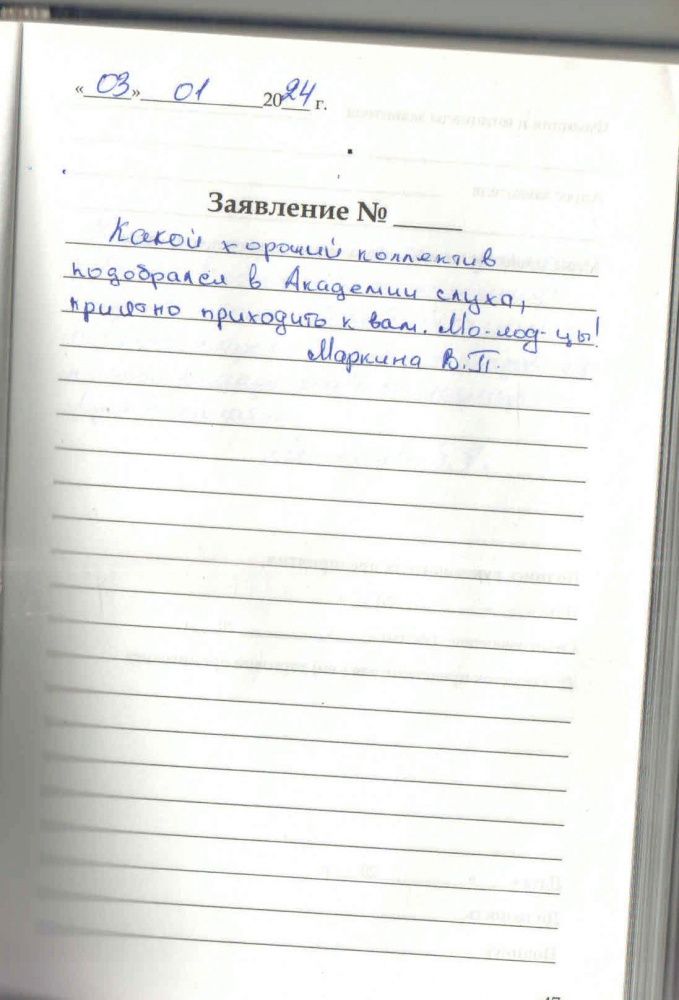 «03» 01 2024 г.
Заявление № ____
Какой хороший коллектив
подобрался в Академии слуха,
приятно приходить к вам. Мо-лод-цы!
Маркина В.П.